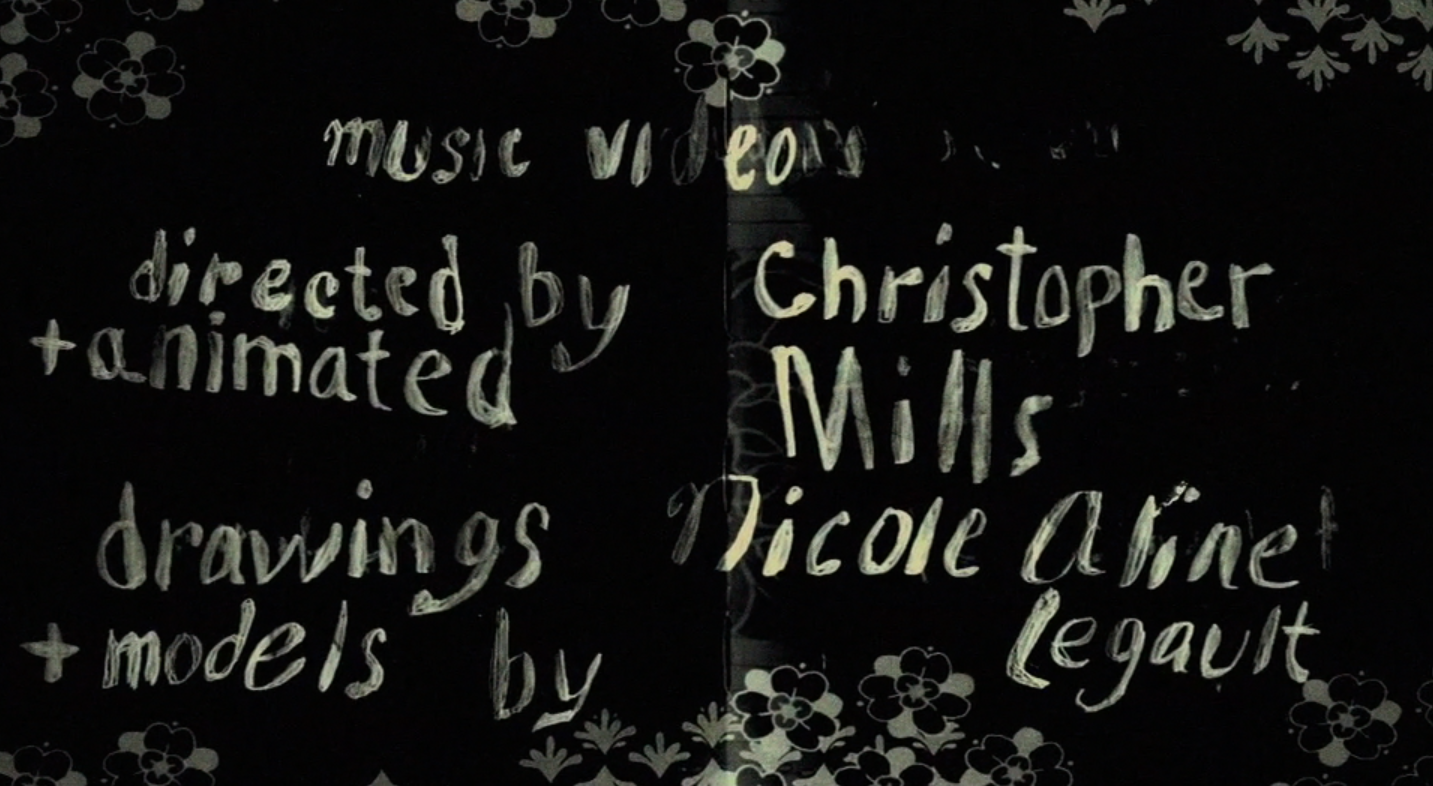 music video
directed by Christopher
+animated Mills
drawings Nicole Aline
+ models by Legault